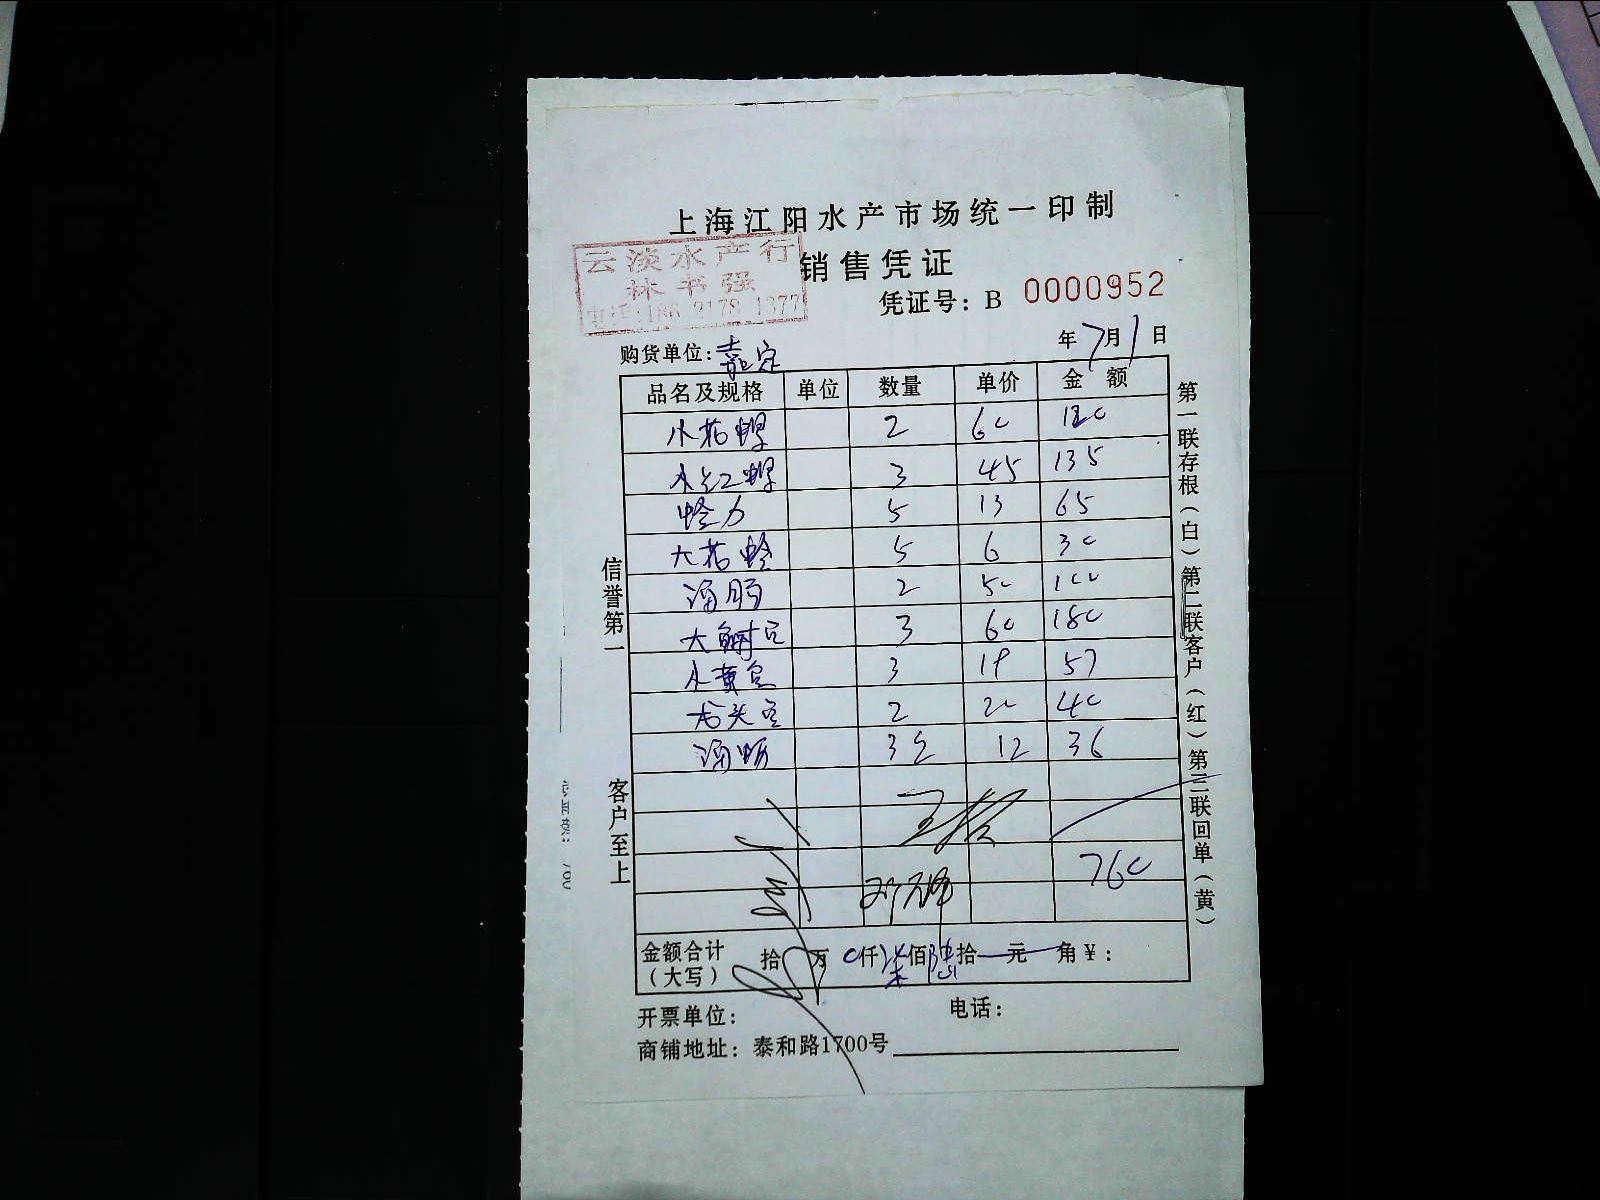 上海江阳水产市场统一印制
销售凭证
云淡水产行
林书强
电话:186 2178 1377
凭证号：B 0000952
购货单位:嘉定
年7月1日
品名及规格 单位 数量 单价 金额
小花螺 2 60 120
小红螺 3 45 135
蛏力 5 13 65
大花蛤 5 6 30
2 50 100
大鲥鱼 3 60 180
小黄鱼 3 19 57
龙头鱼 2 20 40
3 12 36
760
金额合计（大写） 拾 万 0仟柒佰陆拾 元 角￥：
开票单位：
电话：
商铺地址：泰和路1700号
信誉第一
客户至上
第一联存根（白）第二联客户（红）第三联回单（黄）